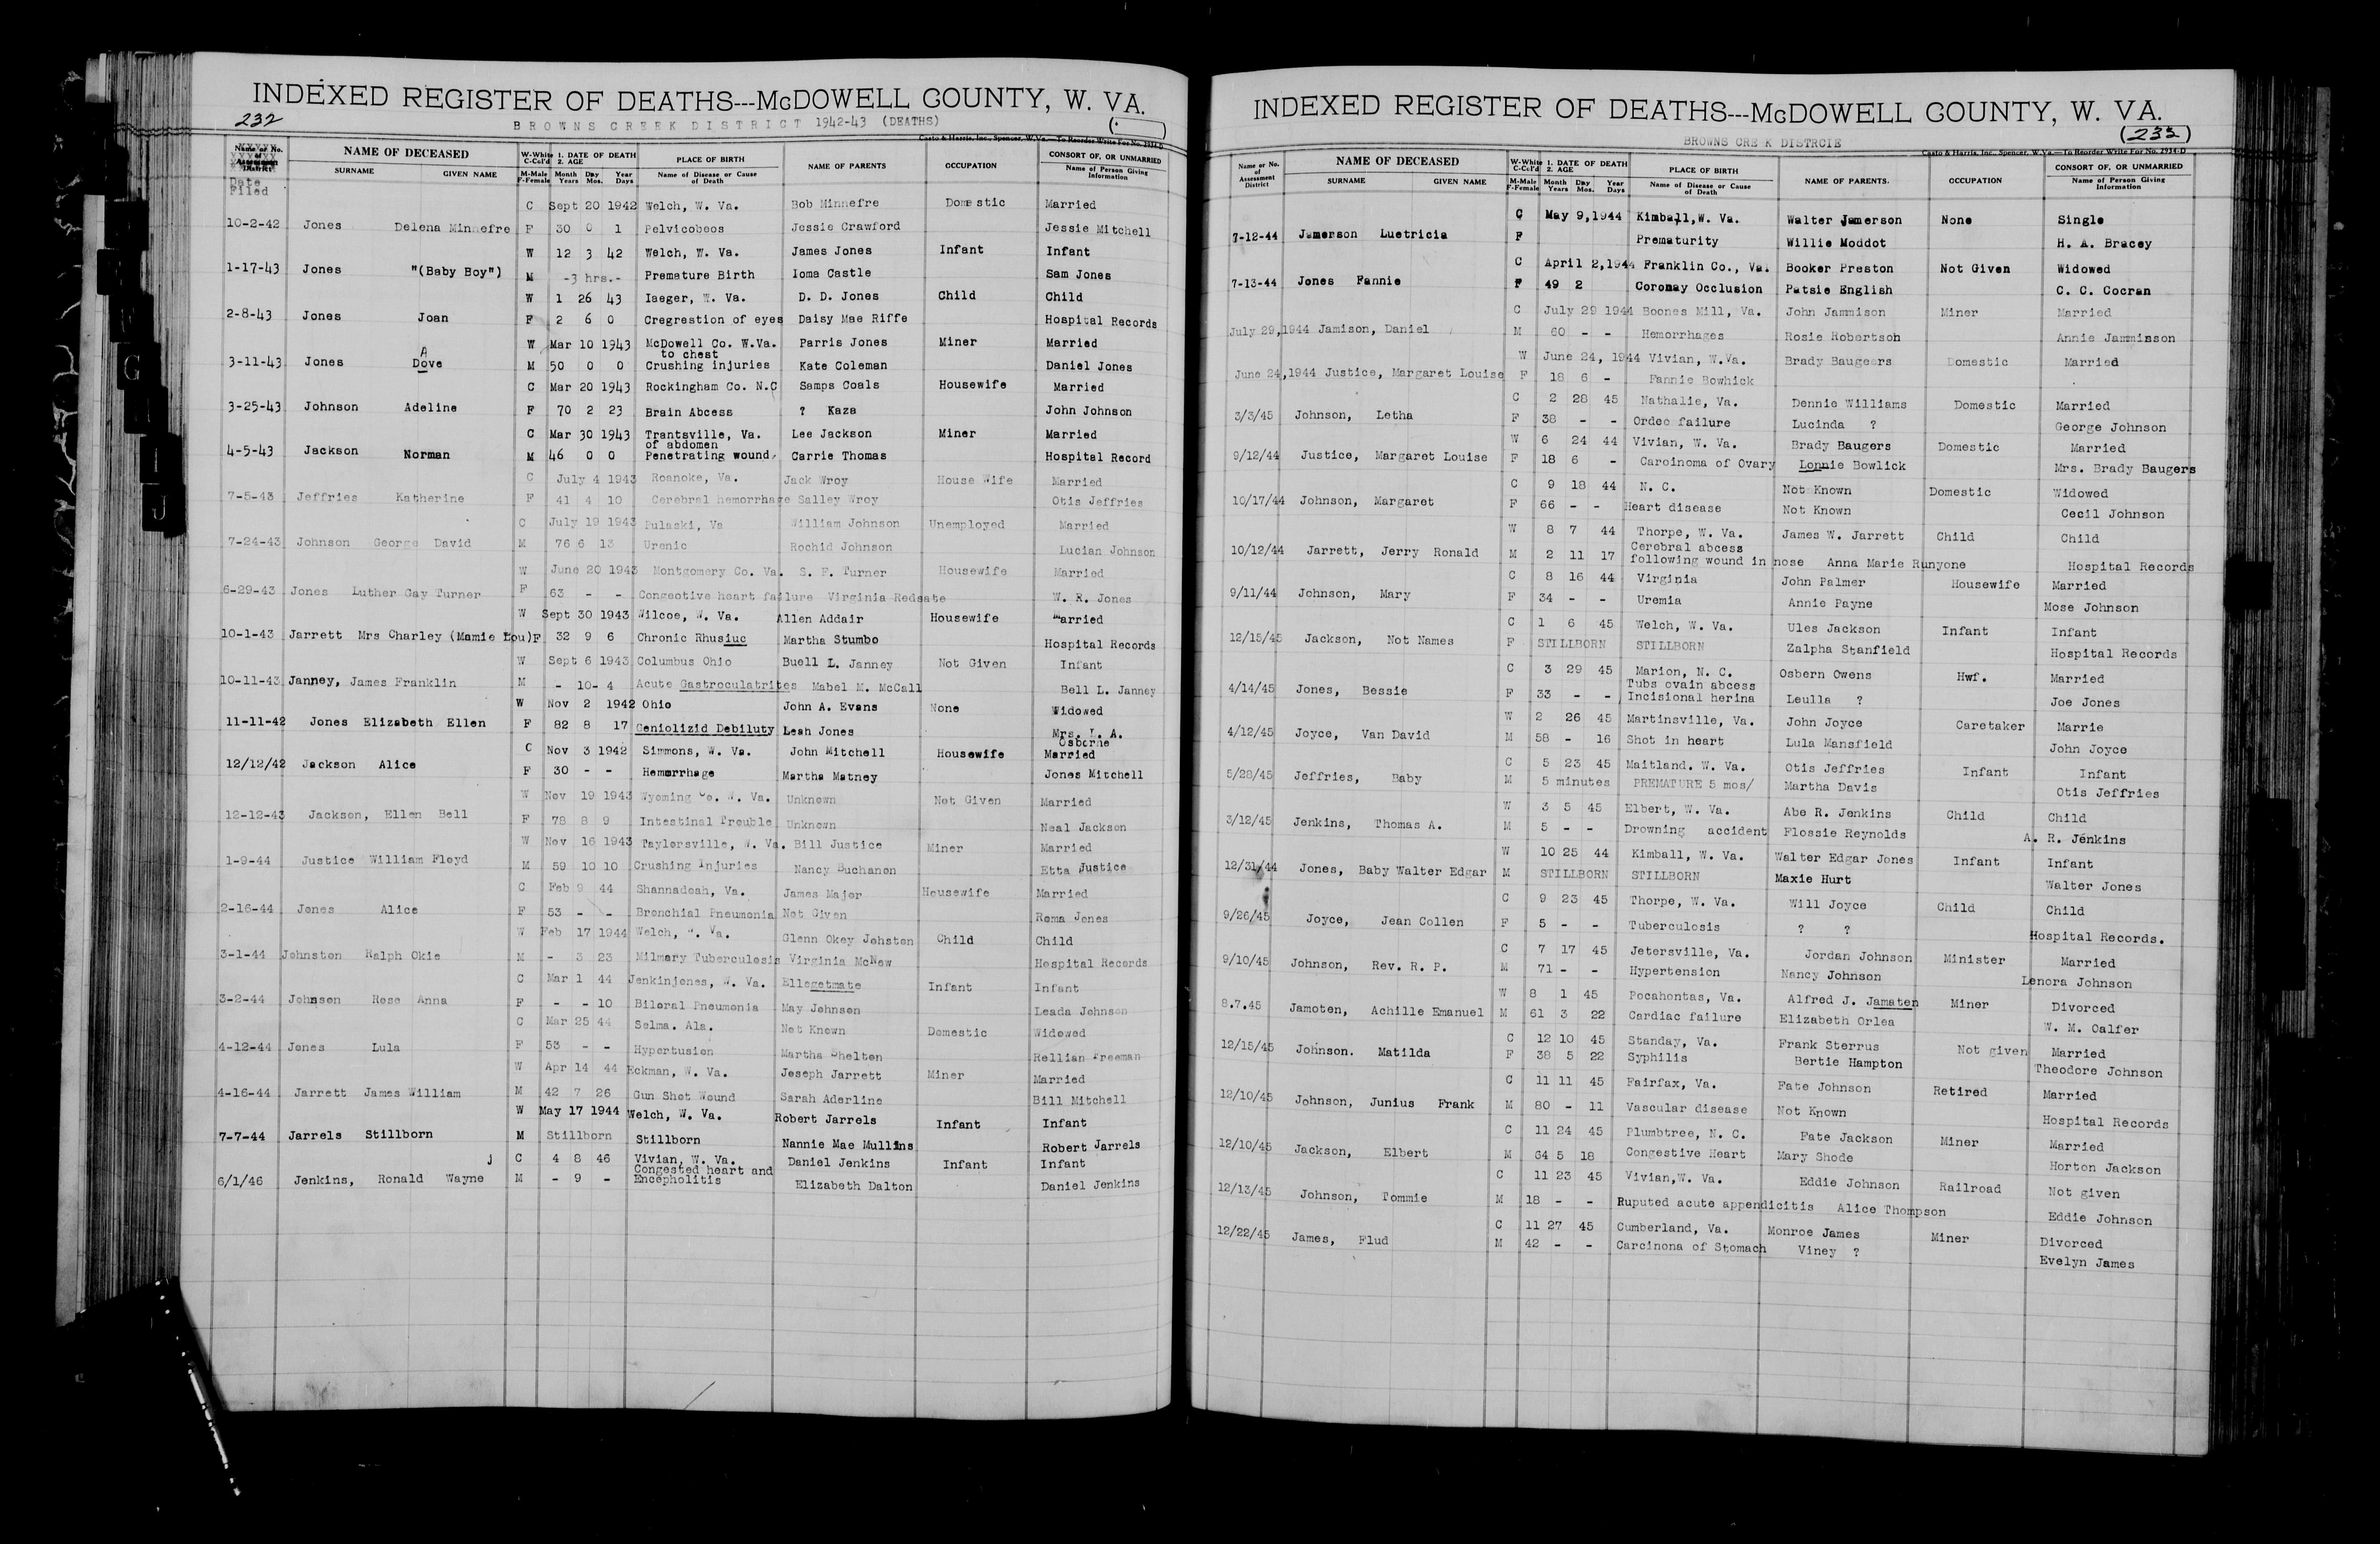 INDEXED REGISTER OF DEATHS---McDOWELL COUNTY, W. VA.
232
BROWNS CREEK DISTRICT 1942-43 (DEATHS)
Casto & Harris, Inc., Spencer, W. Va.—To Reorder Write For No. 2934-D
Name or No. of Assessment District NAME OF DECEASED W-White C-Col'd 1. DATE OF DEATH 2. AGE PLACE OF BIRTH NAME OF PARENTS OCCUPATION CONSORT OF, OR UNMARRIED
Date Filed SURNAME GIVEN NAME M-Male F-Female Month Day Year Years Mos. Days Name of Disease or Cause of Death Name of Person Giving Information
C Sept 20 1942 Welch, W. Va. Bob Minnefre Domestic Married
10-2-42 Jones Delena Minnefre F 30 0 1 Pelvicobeos Jessie Crawford Jessie Mitchell
W 12 3 42 Welch, W. Va. James Jones Infant Infant
1-17-43 Jones "(Baby Boy") M -3 hrs.- Premature Birth Ioma Castle Sam Jones
W 1 26 43 Iaeger, W. Va. D. D. Jones Child Child
2-8-43 Jones Joan F 2 6 0 Cregrestion of eyes Daisy Mae Riffe Hospital Records
W Mar 10 1943 McDowell Co. W.Va. Parris Jones Miner Married
A to chest
3-11-43 Jones Dove M 50 0 0 Crushing injuries Kate Coleman Daniel Jones
C Mar 20 1943 Rockingham Co. N.C Samps Coals Housewife Married
3-25-43 Johnson Adeline F 70 2 23 Brain Abcess ? Kaza John Johnson
C Mar 30 1943 Trantsville, Va. Lee Jackson Miner Married
of abdomen
4-5-43 Jackson Norman M 46 0 0 Penetrating wound, Carrie Thomas Hospital Record
C July 4 1943 Roanoke, Va. Jack Wroy House Wife Married
7-5-43 Jeffries Katherine F 41 4 10 Cerebral hemorrhage Salley Wroy Otis Jeffries
C July 19 1943 Pulaski, Va William Johnson Unemployed Married
7-24-43 Johnson George David M 76 6 13 Urenic Rochid Johnson Lucian Johnson
W June 20 1943 Montgomery Co. Va. S. F. Turner Housewife Married
6-29-43 Jones Luther Gay Turner F 63 - - Congeotive heart failure Virginia Redsate W. R. Jones
W Sept 30 1943 Wilcoe, W. Va. Allen Addair Housewife Married
10-1-43 Jarrett Mrs Charley (Mamie Lou) F 32 9 6 Chronic Rhusiuc Martha Stumbo Hospital Records
W Sept 6 1943 Columbus Ohio Buell L. Janney Not Given Infant
10-11-43 Janney, James Franklin M - 10- 4 Acute Gastroculatrites Mabel M. McCall Bell L. Janney
W Nov 2 1942 Ohio John A. Evans None Widowed
11-11-42 Jones Elizabeth Ellen F 82 8 17 Geniolizid Debiluty Leah Jones Mrs. L. A. Osborne
C Nov 3 1942 Simmons, W. Va. John Mitchell Housewife Married
12/12/42 Jackson Alice F 30 - - Hemorrhage Martha Matney Jones Mitchell
W Nov 19 1943 Wyoming Co. W. Va. Unknown Not Given Married
12-12-43 Jackson, Ellen Bell F 78 8 9 Intestinal Trouble Unknown Neal Jackson
W Nov 16 1943 Taylersville, W. Va. Bill Justice Miner Married
1-9-44 Justice William Floyd M 59 10 10 Crushing Injuries Nancy Buchanon Etta Justice
C Feb 9 44 Shannadoah, Va. James Major Housewife Married
2-16-44 Jones Alice F 53 - - Bronchial Pneumonia Not Given Roma Jones
W Feb 17 1944 Welch, W. Va. Glenn Okey Johston Child Child
3-1-44 Johnston Ralph Okie M - 3 23 Milmary Tuberculosis Virginia McNew Hospital Records
C Mar 1 44 Jenkinjones, W. Va. Ellegetmate Infant Infant
3-2-44 Johnson Rose Anna F - - 10 Biloral Pneumonia May Johnson Leada Johnson
C Mar 25 44 Selma. Ala. Not Known Domestic Widowed
4-12-44 Jones Lula F 53 - - Hypertusion Martha Shelton Rellian Freeman
W Apr 14 44 Eckman, W. Va. Joseph Jarrett Miner Married
4-16-44 Jarrett James William M 42 7 26 Gun Shot Wound Sarah Aderline Bill Mitchell
W May 17 1944 Welch, W. Va. Robert Jarrels Infant Infant
7-7-44 Jarrels Stillborn M Stillborn Stillborn Nannie Mae Mullins Robert Jarrels
j C 4 8 46 Vivian, W. Va. Daniel Jenkins Infant Infant
Congested heart and
6/1/46 Jenkins, Ronald Wayne M - 9 - Encepholitis Elizabeth Dalton Daniel Jenkins
G
I
J
INDEXED REGISTER OF DEATHS---McDOWELL COUNTY, W. VA.
(233)
BROWNS CRE K DISTRCIE
Casto & Harris, Inc., Spencer, W. Va.—To Reorder Write For No. 2934-D
Name or No. of Assessment District NAME OF DECEASED W-White C-Col'd 1. DATE OF DEATH 2. AGE PLACE OF BIRTH NAME OF PARENTS. OCCUPATION CONSORT OF, OR UNMARRIED
SURNAME GIVEN NAME M-Male F-Female Month Day Year Years Mos. Days Name of Disease or Cause of Death Name of Person Giving Information
C May 9,1944 Kimball,W. Va. Walter Jamerson None Single
7-12-44 Jamerson Luetricia F Prematurity Willie Moddot H. A. Bracey
C April 2,1944 Franklin Co., Va. Booker Preston Not Given Widowed
7-13-44 Jones Fannie F 49 2 Coronay Occlusion Patsie English C. C. Cocran
C July 29 1944 Boones Mill, Va. John Jammison Miner Married
July 29,1944 Jamison, Daniel M 60 - - Hemorrhages Rosie Robertson Annie Jamminson
W June 24, 1944 Vivian, W.Va. Brady Baugeers Domestic Married
June 24,1944 Justice, Margaret Louise F 18 6 - Fannie Bowhick
C 2 28 45 Nathalie, Va. Dennie Williams Domestic Married
3/3/45 Johnson, Letha F 38 - - Ordec failure Lucinda ? George Johnson
W 6 24 44 Vivian, W. Va. Brady Baugers Domestic Married
9/12/44 Justice, Margaret Louise F 18 6 - Carcinoma of Ovary Lonnie Bowlick Mrs. Brady Baugers
C 9 18 44 N. C. Not Known Domestic Widowed
10/17/44 Johnson, Margaret F 66 - - Heart disease Not Known Cecil Johnson
W 8 7 44 Thorpe, W. Va. James W. Jarrett Child Child
Cerebral abcess
10/12/44 Jarrett, Jerry Ronald M 2 11 17 following wound in nose Anna Marie Runyone Hospital Records
C 8 16 44 Virginia John Palmer Housewife Married
9/11/44 Johnson, Mary F 34 - - Uremia Annie Payne Mose Johnson
C 1 6 45 Welch, W. Va. Ules Jackson Infant Infant
12/15/45 Jackson, Not Names F STILLBORN STILLBORN Zalpha Stanfield Hospital Records
C 3 29 45 Marion, N. C. Osbern Owens Hwf. Married
Tubs ovain abcess
4/14/45 Jones, Bessie F 33 - - Incisional herina Leulla ? Joe Jones
W 2 26 45 Martinsville, Va. John Joyce Caretaker Marrie
4/12/45 Joyce, Van David M 58 - 16 Shot in heart Lula Mansfield John Joyce
C 5 23 45 Maitland. W. Va. Otis Jeffries Infant Infant
5/28/45 Jeffries, Baby M 5 minutes PREMATURE 5 mos/ Martha Davis Otis Jeffries
W 3 5 45 Elbert, W. Va. Abe R. Jenkins Child Child
3/12/45 Jenkins, Thomas A. M 5 - - Drowning accident Flossie Reynolds A. R. Jenkins
W 10 25 44 Kimball, W. Va. Walter Edgar Jones Infant Infant
12/31/44 Jones, Baby Walter Edgar M STILLBORN STILLBORN Maxie Hurt Walter Jones
C 9 23 45 Thorpe, W. Va. Will Joyce Child Child
9/26/45 Joyce, Jean Collen F 5 - - Tuberculosis ? ? Hospital Records.
C 7 17 45 Jetersville, Va. Jordan Johnson Minister Married
9/10/45 Johnson, Rev. R. P. M 71 - - Hypertension Nancy Johnson Lenora Johnson
W 8 1 45 Pocahontas, Va. Alfred J. Jamaten Miner Divorced
8.7.45 Jamoten, Achille Emanuel M 61 3 22 Cardiac failure Elizabeth Orlea W. M. Calfer
C 12 10 45 Standay, Va. Frank Sterrus Not given Married
12/15/45 Johnson. Matilda F 38 5 22 Syphilis Bertie Hampton Theodore Johnson
C 11 11 45 Fairfax, Va. Fate Johnson Retired Married
12/10/45 Johnson, Junius Frank M 80 - 11 Vascular disease Not Known Hospital Records
C 11 24 45 Plumbtree, N. C. Fate Jackson Miner Married
12/10/45 Jackson, Elbert M 64 5 18 Congestive Heart Mary Shode Horton Jackson
C 11 23 45 Vivian,W. Va. Eddie Johnson Railroad Not given
12/13/45 Johnson, Tommie M 18 - - Ruputed acute appendicitis Alice Thompson Eddie Johnson
C 11 27 45 Cumberland, Va. Monroe James Miner Divorced
12/22/45 James, Flud M 42 - - Carcinona of Stomach Viney ? Evelyn James